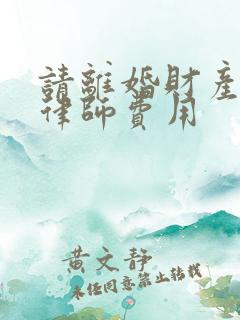 請離婚財產
律師費用
黃文靜
未任同意禁止轉載